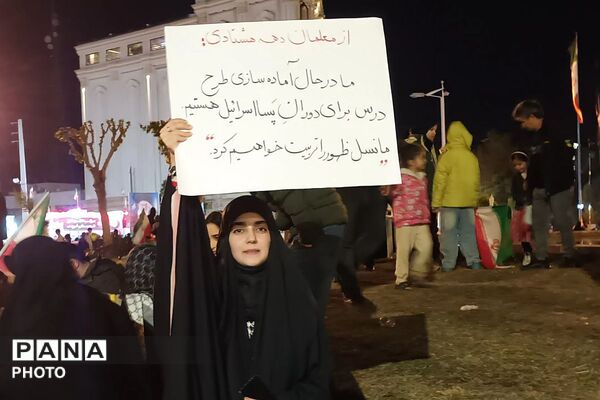 از معلمان دهه هشتادی:
ما در حال آماده سازی طرح
درس برای دوران پسااسرائیل هستیم.
"ما نسل ظهور را تربیت خواهیم کرد."
PANA
PHOTO